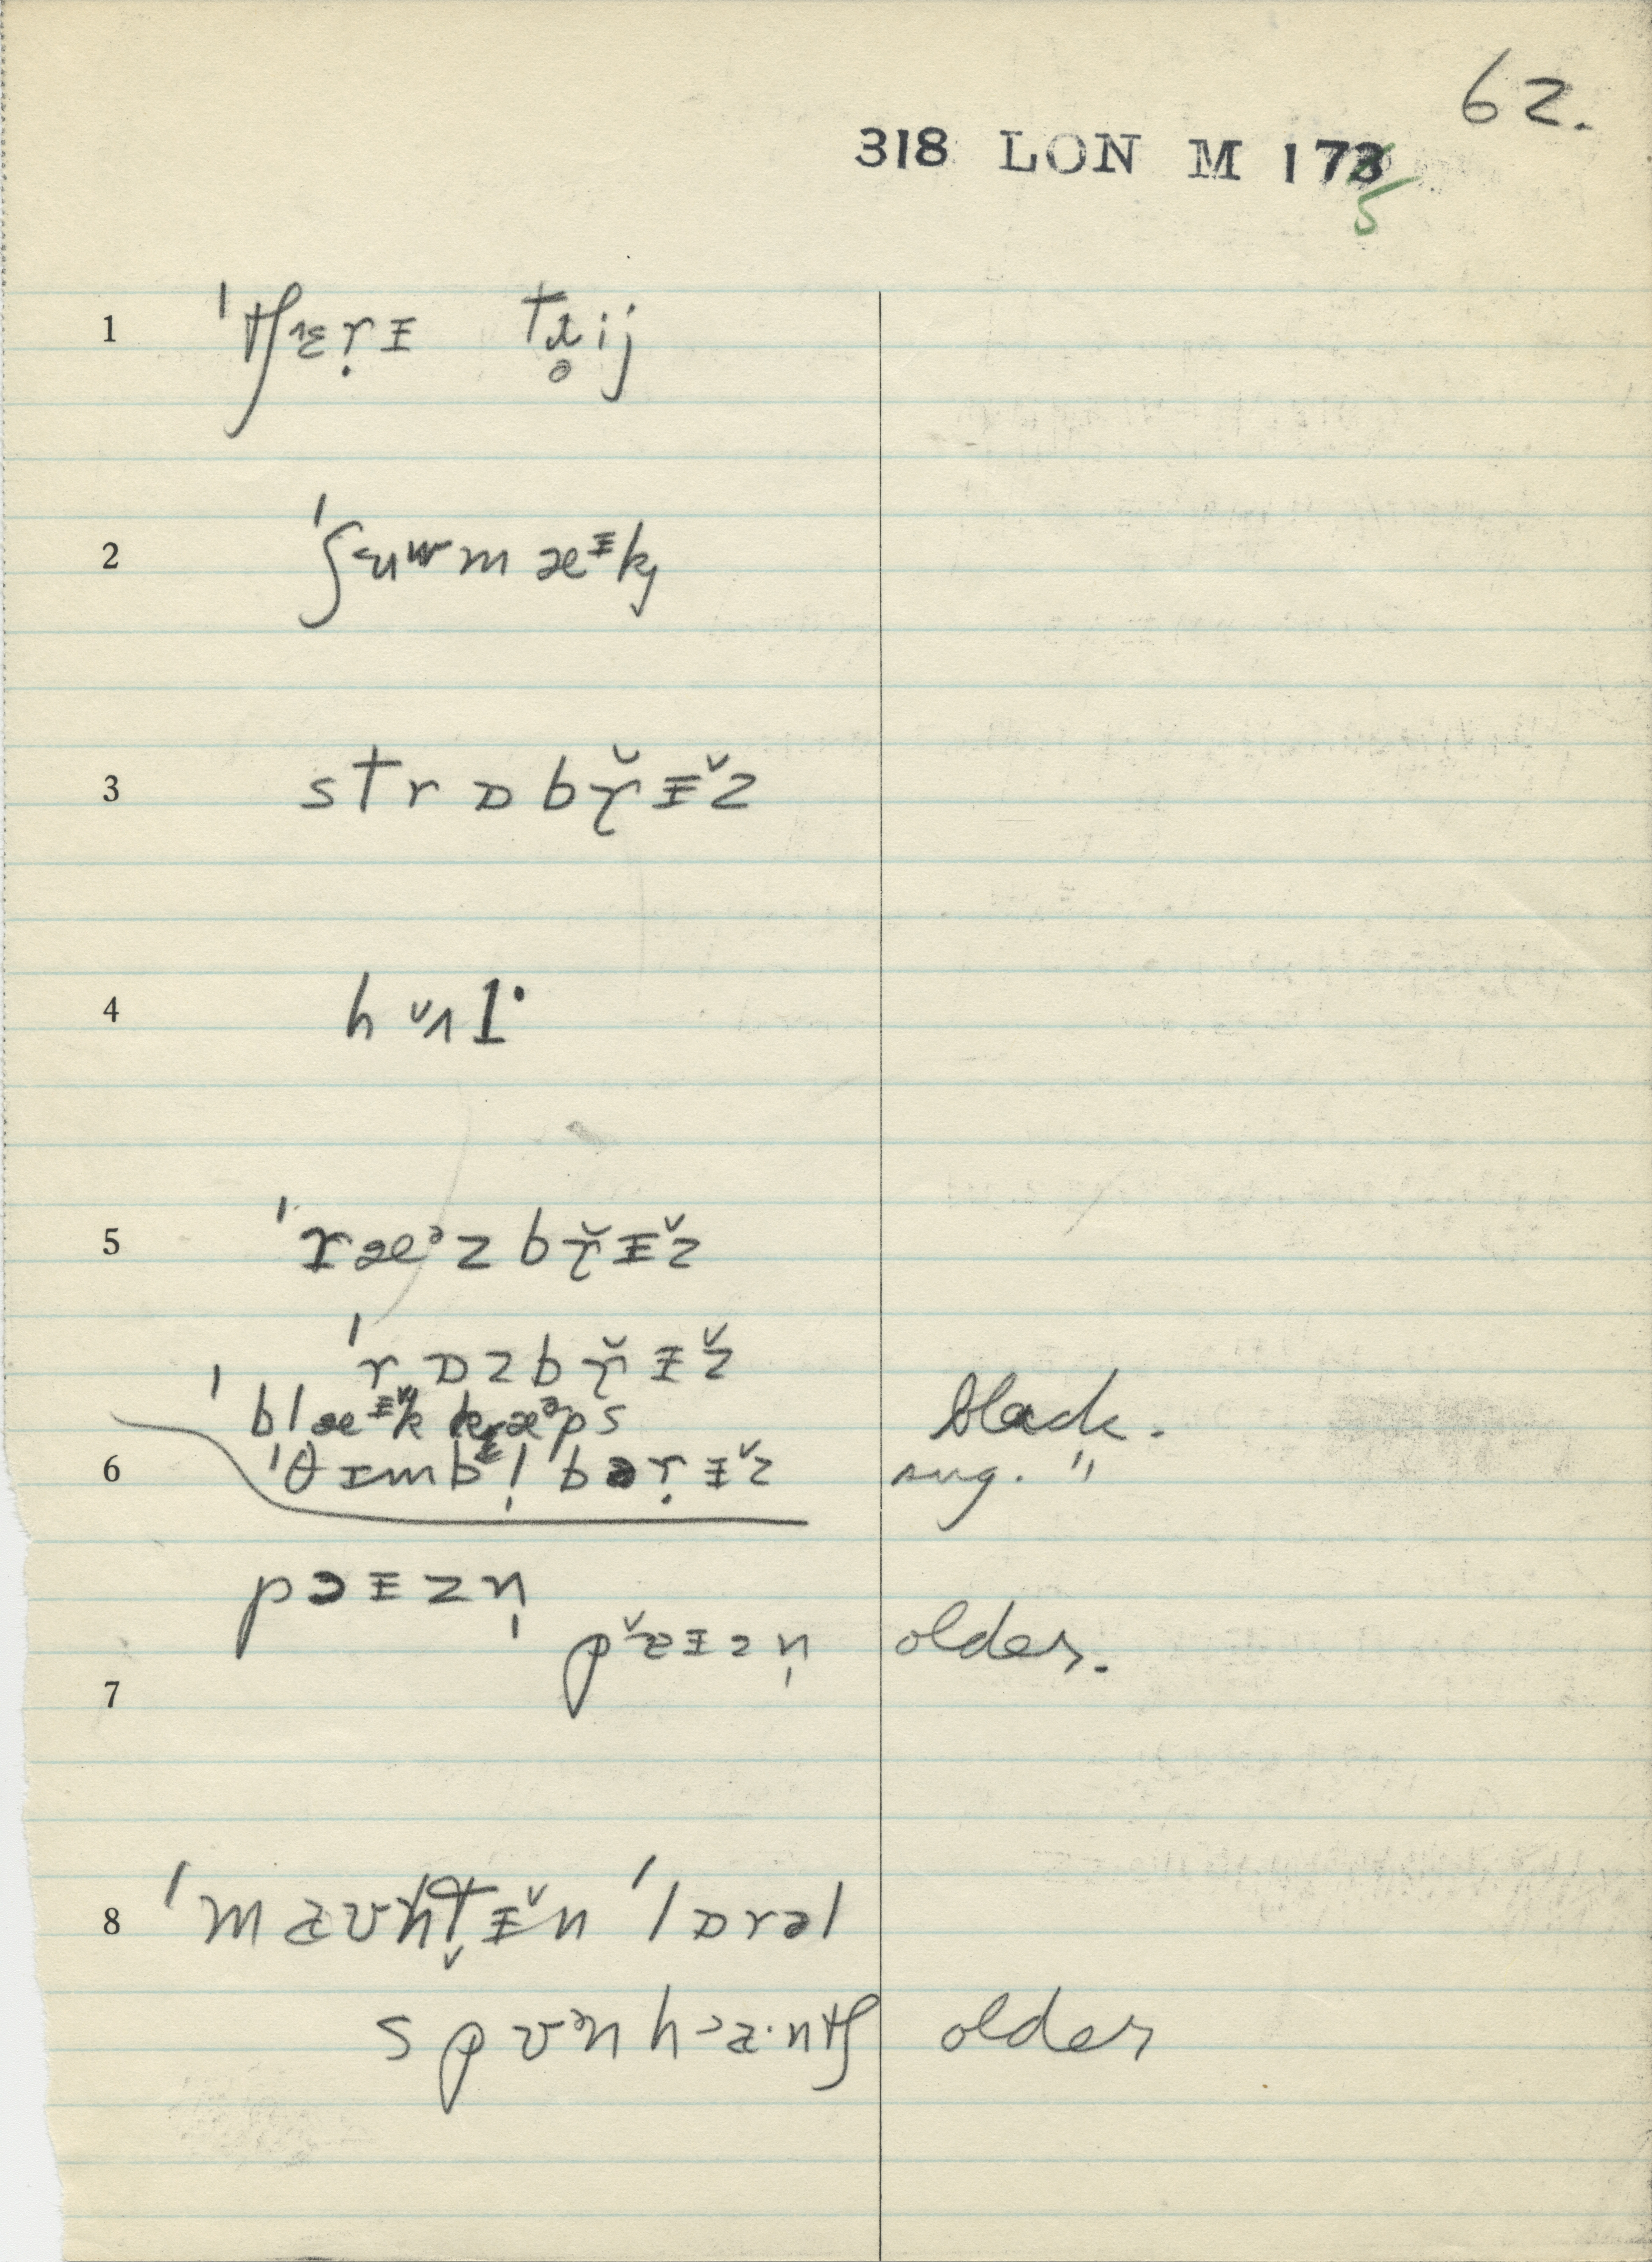 62.
318 LON M 173
5
1 ˈtʃɛṛᵻ tɹ̥ij
2 ˈʃɜuʷmæᵻkj
3 strɒbɤ̆ᵻ̌z
4 hʌl·
5 ˈræᵊzbɤ̆ᵻ̌z
ˈrɒzbɤ̆ᵻ̌z
ˈblæᵻ̌k kæᵊps black.
6 ˈθɪmbl̩ bəṛᵻ̌z sug. "
pɔᵻzn̩
pɜᵻzn̩ older.
7
8 ˈmaʊntᵻ̌n ˈlɒrəl
spʊᵊn hɔa·ntʃ older